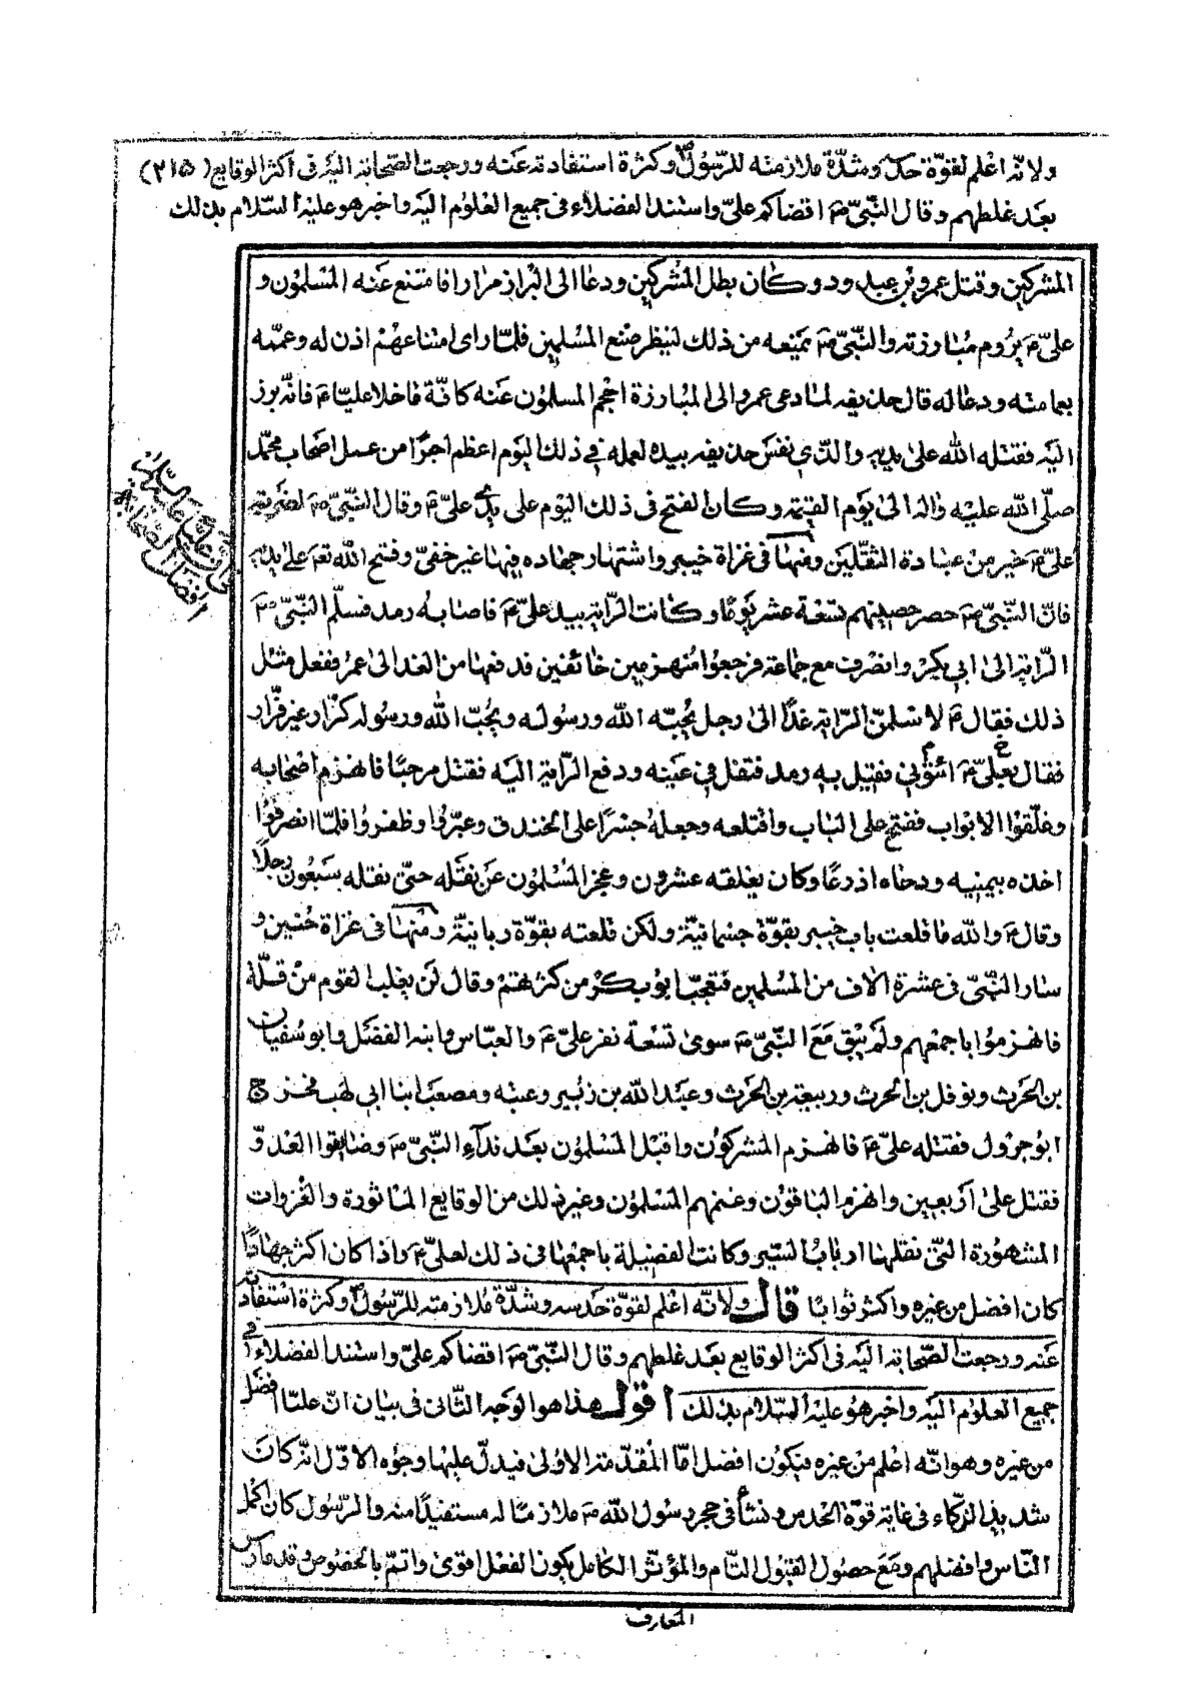 ولانّه اعلم لقوّة حدسه وشدّة ملازمته للرّسول ص وكثرة استفادته عنه ورجعت الصّحابة اليه فى اكثر الوقايع (٢١٥)
بعد غلطهم وقال النّبىّ ص اقضاكم علىّ واستند الفضلاء فى جميع العلوم اليه واخبر هو عليه السّلام بذلك
المشركين وقتل عمرو بن عبد ود وكان بطل المشركين ودعا الى البراز مرارا فامتنع عنه المسلمون و
علىّ ع يروم مبارزته والنّبىّ ص يمنعه من ذلك لينظر صنع المسلمين فلمّا راى امتناعهم اذن له وعمّمه
بعمامته ودعا له قال حذيفه لمّا دعى عمرو الى المبارزة احجم المسلمون عنه كافّة ما خلا عليّا ع فانّه برز
اليه فقتله الله على يديه والّذى نفس حذيفه بيده لعمله فى ذلك اليوم اعظم اجرا من عمل اصحاب محمّد
صلّى الله عليه واله الى يوم القيمة وكان الفتح فى ذلك اليوم على يد علىّ ع وقال النّبىّ ص لضربة
علىّ ع خير من عبادة الثقلين ومنها فى غزاة خيبر واشتهار جهاده فيها غير خفىّ وفتح الله تع على يديه
فانّ النّبىّ ص حصر حصنهم تسعة عشر يوما وكانت الرّاية بيد علىّ ع فاصابه رمد فسلّم النّبىّ ص
الرّاية الى ابى بكر وانصرف مع جماعة فرجعوا منهزمين خائفين فدفعها من الغد الى عمر ففعل مثل
ذلك فقال ع لاسلمنّ الرّاية غدا الى رجل يحبّه الله ورسوله ويحبّ الله ورسوله كرّار غير فرّار
فقال بعلىّ ع ائتونى فقيل به رمد فتفل فى عينه ودفع الرّاية اليه فقتل مرحبا فانهزم اصحابه
وغلّقوا الابواب ففتح على الباب واقتلعه وجعله جسرا على الخندق وعبروا وظفروا فلمّا انصرفوا
اخذه بيمينه ودحاه اذرعا وكان يغلقه عشرون وعجز المسلمون عن نقله حتّى نقله سبعون رجلا
وقال ع والله ما قلعت باب خيبر بقوّة جسمانيّة ولكن قلعته بقوّة ربانيّة ومنها فى غزاة حنين و
سار النّبىّ فى عشرة الاف من المسلمين فتعجّب ابو بكر من كثرتهم وقال لن يغلب القوم من قلّة
فانهزموا باجمعهم ولم يبق مع النّبىّ ص سوى تسعة نفر علىّ ع والعبّاس وابنه الفضل وابو سفيان
بن الحرث ونوفل بن الحرث وربيعة بن الحرث وعبد الله بن زبير وعتبه ومصعب ابنا ابى لهب فخرج
ابو جرول فقتله علىّ ع فانهزم المشركون واقبل المسلمون بعد نداء النّبىّ ص وضايقوا العدوّ
فقتل علىّ اربعين وانهزم الباقون وغنمهم المسلمون وغير ذلك من الوقايع المأثورة والغزوات
المشهورة الّتى نقلها ارباب السّير وكانت الفضيلة باجمعها فى ذلك لعلىّ ع واذا كان اكثر جهادا
كان افضل من غيره واكثر ثوابا قال ولانّه اعلم لقوّة حدسه وشدّة ملازمته للرّسول ص وكثرة استفادته
عنه ورجعت الصّحابة اليه فى اكثر الوقايع بعد غلطهم وقال النّبىّ ص اقضاكم علىّ واستند الفضلاء فى
جميع العلوم اليه واخبر هو عليه السّلام بذلك اقول هذا هو الوجه الثّانى فى بيان انّ عليّا افضل
من غيره وهو انّه اعلم من غيره فيكون افضل امّا المقدّمة الاولى فيدلّ عليها وجوه الاوّل انّه كان
شديد الذّكاء فى غاية قوّة الحدس ونشأ فى حجر رسول الله ص ملازما له مستفيدا منه والرّسول كان اكمل
النّاس وافضلهم ومع حصول القبول التّام والمؤثّر الكامل يكون الفعل اقوى واتمّ بالخصوص وقد مارس
المعارف